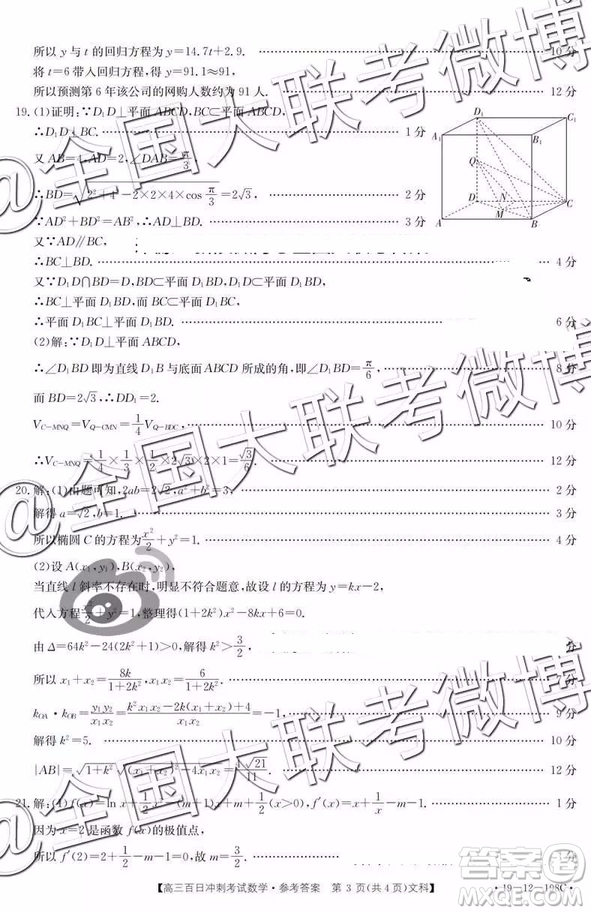 所以 y 与 t 的回归方程为 y=14.7t+2.9. 10 分
将 t=6 带入回归方程,得 y=91.1≈91,
所以预测第 6 年该公司的网购人数约为 91 人. 12 分
19. (1)证明:∵D₁D⊥平面 ABCD,BC⊂平面 ABCD,
∴D₁D⊥BC. 1 分
又 AB=4,AD=2,∠DAB=π/3,
∴BD=√(2²+4²-2×2×4×cos π/3)=2√3, 2 分
∴AD²+BD²=AB²,∴AD⊥BD. 3 分
又∵AD∥BC,
∴BC⊥BD. 4 分
又∵D₁D∩BD=D,BD⊂平面 D₁BD,D₁D⊂平面 D₁BD,
∴BC⊥平面 D₁BD,而 BC⊂平面 D₁BC,
∴平面 D₁BC⊥平面 D₁BD. 6 分
(2)解:∵D₁D⊥平面 ABCD,
∴∠D₁BD 即为直线 D₁B 与底面 ABCD 所成的角,即∠D₁BD=π/6, 8 分
而 BD=2√3,∴DD₁=2.
V_{C-MNQ}=V_{Q-CMN}=1/4 V_{Q-BDC}, 10 分
∴V_{C-MNQ}=1/4×1/3×1/2×2√3×2×1=√3/6. 12 分
20. 解:(1)由题可知,2ab=2√2,a²+b²=3, 2 分
解得 a=√2,b=1. 3 分
所以椭圆 C 的方程为 x²/2+y²=1. 4 分
(2)设 A(x₁,y₁),B(x₂,y₂),
当直线 l 斜率不存在时,明显不符合题意,故设 l 的方程为 y=kx-2,
代入方程 x²/2+y²=1,整理得(1+2k²)x²-8kx+6=0.
由 Δ=64k²-24(2k²+1)>0,解得 k²>3/2,
所以 x₁+x₂=8k/(1+2k²),x₁x₂=6/(1+2k²).
k_{OA}·k_{OB}=y₁y₂/x₁x₂=(k²x₁x₂-2k(x₁+x₂)+4)/x₁x₂=-1, 9 分
解得 k²=5. 10 分
|AB|=√(1+k²)√((x₁+x₂)²-4x₁x₂)=4√21/11. 12 分
21. 解:(1)f(x)=ln x+1/2 x²-(m+1)x+m+1/2(x>0),f′(x)=x+1/x-m-1. 1 分
因为 x=2 是函数 f(x)的极值点,
所以 f′(2)=2+1/2-m-1=0,故 m=3/2.
【高三百日冲刺考试数学·参考答案 第 3 页(共 4 页)文科】
·19-12-198C·
D₁
C₁
A₁
B₁
Q
D
N
C
M
A
B
@全国大联考微博
@全国大联考微博
@全国大联考微博
答案圈